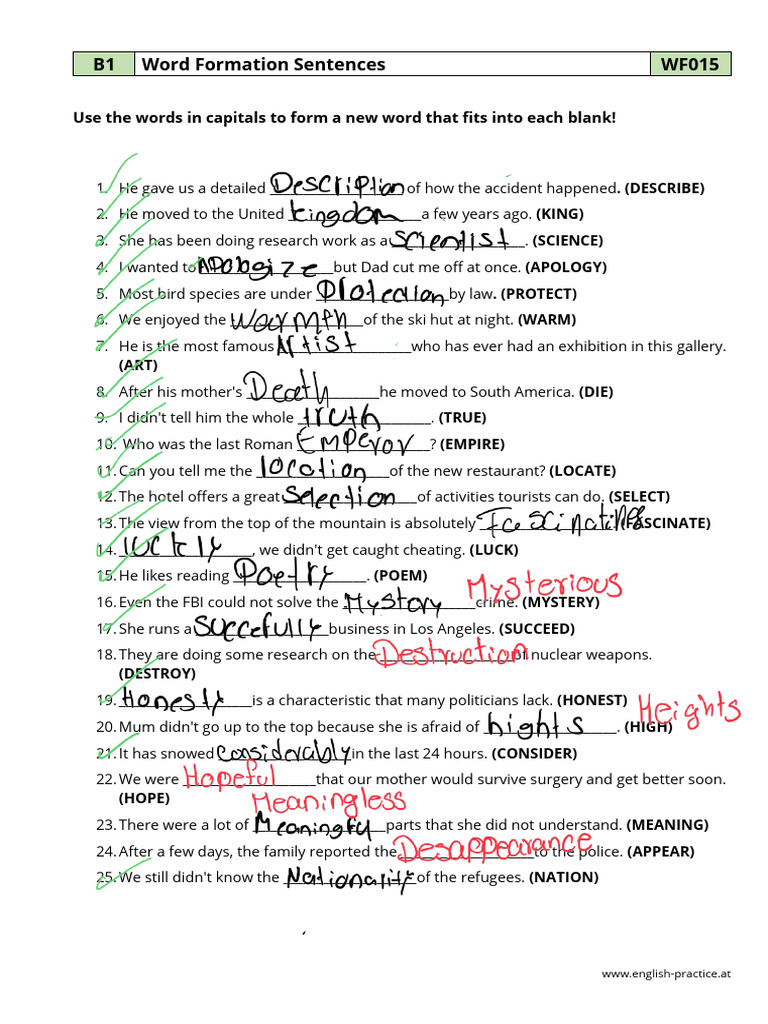 B1 Word Formation Sentences WF015
Use the words in capitals to form a new word that fits into each blank!
1. He gave us a detailed Description of how the accident happened. (DESCRIBE)
2. He moved to the United kingdom a few years ago. (KING)
3. She has been doing research work as a scientist. (SCIENCE)
4. I wanted to Apologize but Dad cut me off at once. (APOLOGY)
5. Most bird species are under protection by law. (PROTECT)
6. We enjoyed the warmth of the ski hut at night. (WARM)
7. He is the most famous Artist who has ever had an exhibition in this gallery.
(ART)
8. After his mother's Death he moved to South America. (DIE)
9. I didn't tell him the whole truth. (TRUE)
10. Who was the last Roman Emperor? (EMPIRE)
11. Can you tell me the location of the new restaurant? (LOCATE)
12. The hotel offers a great Selection of activities tourists can do. (SELECT)
13. The view from the top of the mountain is absolutely Fascinating (FASCINATE)
14. luckly, we didn't get caught cheating. (LUCK)
15. He likes reading Poetry. (POEM)
Mysterious
16. Even the FBI could not solve the Mystory crime. (MYSTERY)
17. She runs a succefully business in Los Angeles. (SUCCEED)
18. They are doing some research on the Destruction of nuclear weapons.
(DESTROY)
19. Honesty is a characteristic that many politicians lack. (HONEST) Heights
20. Mum didn't go up to the top because she is afraid of hights. (HIGH)
21. It has snowed considerably in the last 24 hours. (CONSIDER)
22. We were Hopeful that our mother would survive surgery and get better soon.
(HOPE) Meaningless
23. There were a lot of Meaningfu parts that she did not understand. (MEANING)
24. After a few days, the family reported the Desappearance to the police. (APPEAR)
25. We still didn't know the Nationality of the refugees. (NATION)
www.english-practice.at